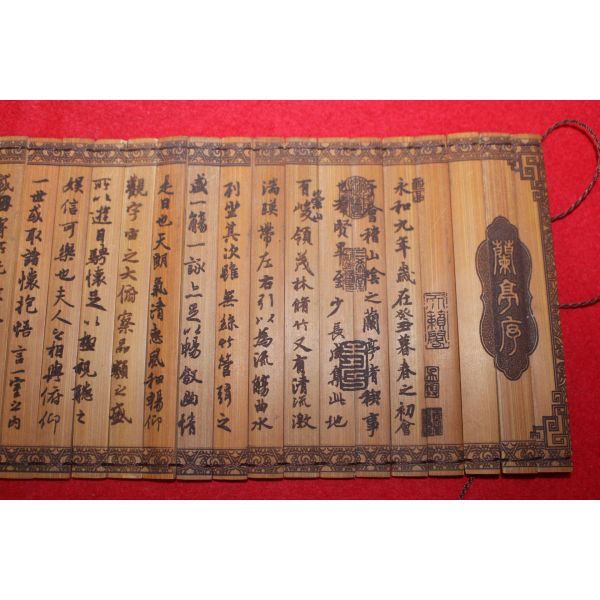 蘭亭序
永和九年歲在癸丑暮春之初會
于會稽山陰之蘭亭脩稧事
也群賢畢至少長咸集此地
有崇山峻領茂林脩竹又有清流激
湍暎帶左右引以為流觴曲水
列坐其次雖無絲竹管弦之
盛一觴一詠亦足以暢敘幽情
是日也天朗氣清惠風和暢仰
觀宇宙之大俯察品類之盛
所以遊目騁懷足以極視聽之
娛信可樂也夫人之相與俯仰
一世或取諸懷抱悟言一室之內